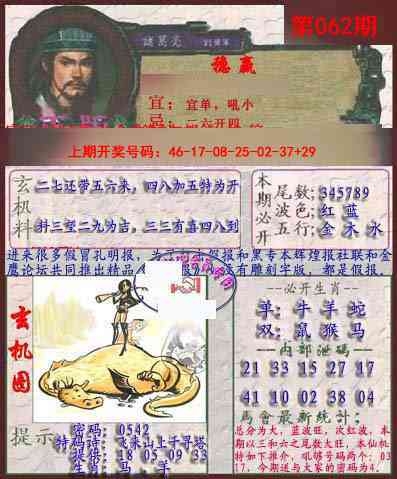 第062期
諸葛亮
穩贏
宜：宜单，吼小
忌：二六开四
上期开奖号码：46-17-08-25-02-37+29
玄机料
二七还带五六来，四八加五特为开
料三望二九为吉，三三有喜四八到
本期必开
尾数：345789
波色：红 蓝
五行：金 木 水
进来很多假冒孔明报，为了
假报和黑专本辉煌报社联和金
鹰论坛共同推出精品
没有雕刻字版，都是假报。
玄机图
必开生肖
单：牛 羊 蛇
双：鼠 猴 马
内部泄码
21 33 15 27 17
41 10 02 38 04
馬會最新统计：
总分为大，蓝波旺，次红波，本
期以三和六之尾数大旺，本仙机
特如下推介，吼够号码两个：03
17，今期送与大家的密码为4。
提示
密码：0542
特码话：飞来山上千寻塔
提供：18 05 09 33
生肖：马 羊